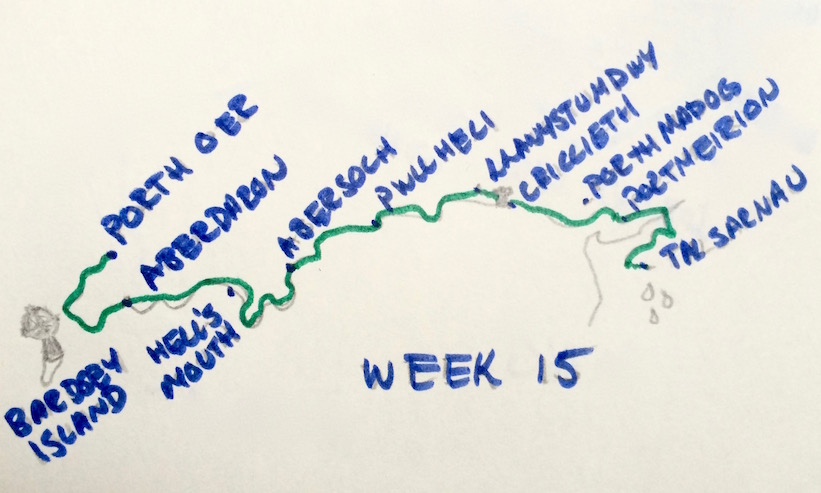 PORTH OER
ABERDARON
ABERSOCH
PWLLHELI
LLANYSTUMDWY
CRICCIETH
PORTHMADOG
PORTMEIRION
TAL SARNAU
HELL'S
MOUTH
BARDSEY
ISLAND
WEEK 15